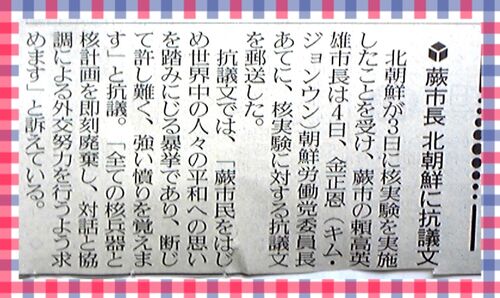 蕨市長 北朝鮮に抗議文
北朝鮮が3日に核実験を実施
したことを受け、蕨市の頼高英
雄市長は4日、金正恩（キム・
ジョンウン）朝鮮労働党委員長
あてに、核実験に対する抗議文
を郵送した。
抗議文では、「蕨市民をはじ
め世界中の人々の平和への思い
を踏みにじる暴挙であり、断じ
て許し難く、強い憤りを覚えま
す」と抗議。「全ての核兵器と
核計画を即刻廃棄し、対話と協
調による外交努力を行うよう求
めます」と訴えている。